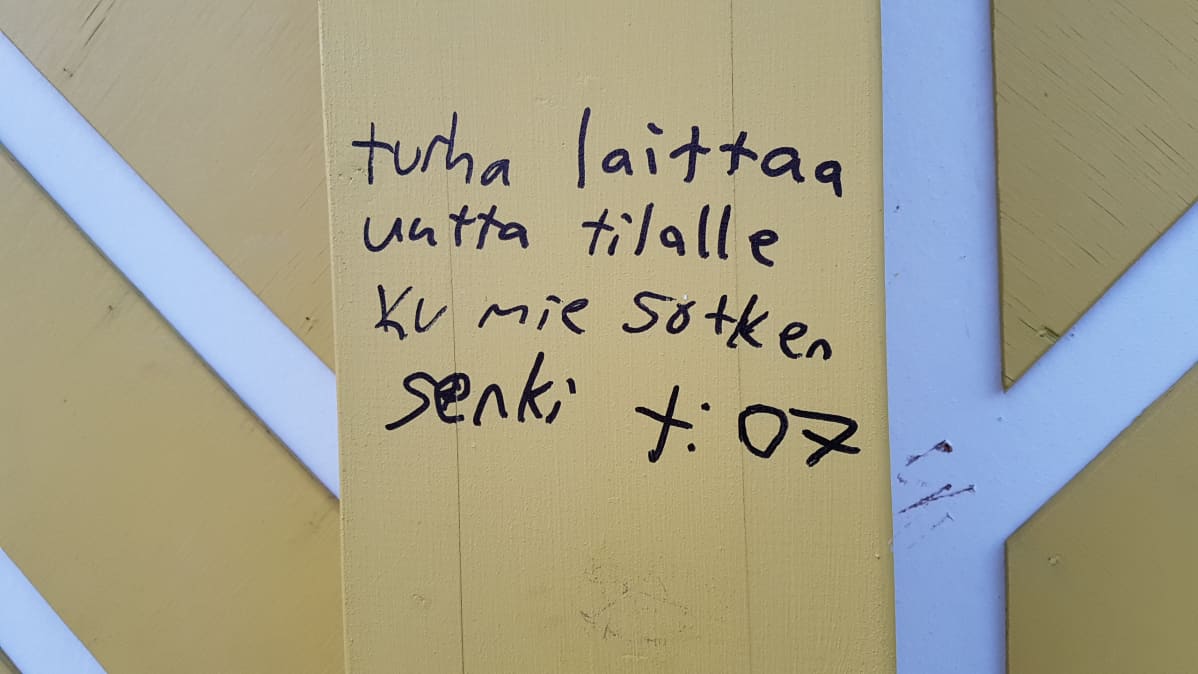 turha laittaa
uutta tilalle
ku mie sotken
senki t: 07